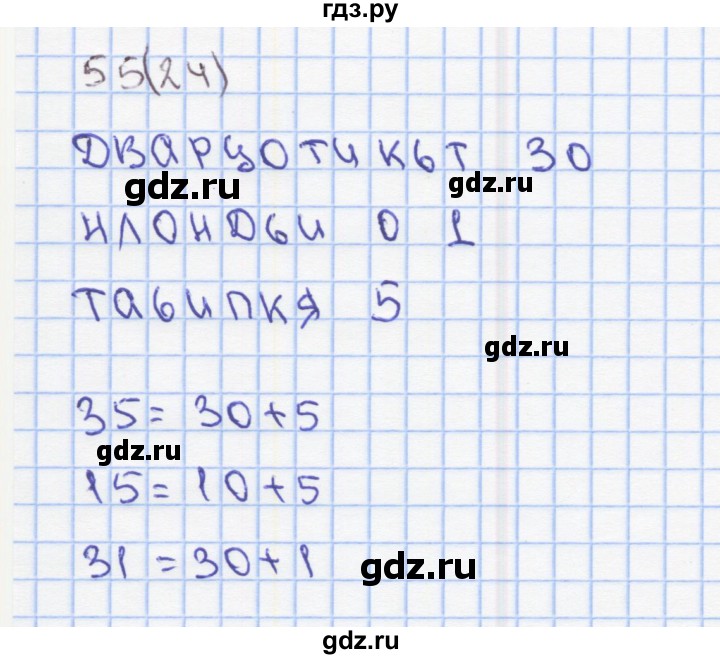 гдз.ру
55(24)
ДВАРЦОТИКЬТ 30
gdz.ru
gdz.ru
НЛОНДЬИ 0 1
ТАБИПКЯ 5
gdz.ru
35 = 30 + 5
gdz.ru
15 = 10 + 5
31 = 30 + 1
gdz.ru
gdz.ru